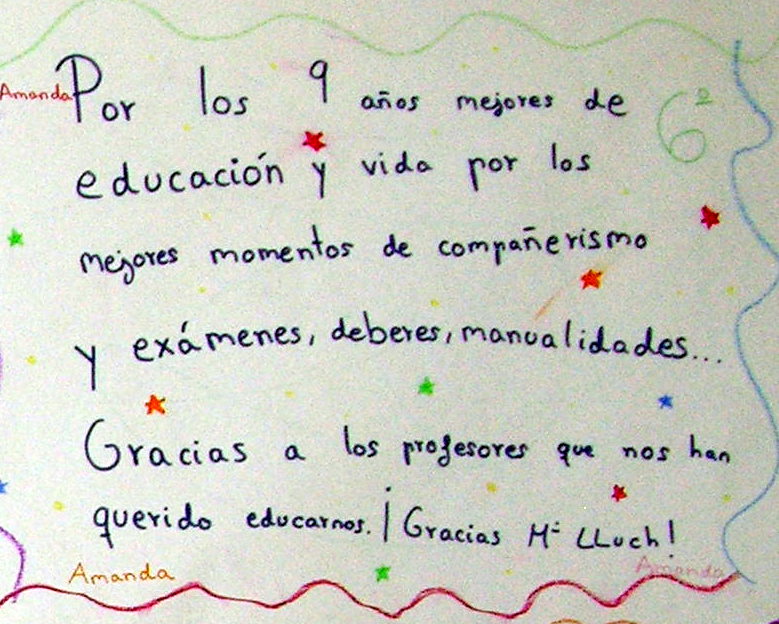 Amanda
Por los 9 años mejores de
6²
educación y vida por los
mejores momentos de compañerismo
y exámenes, deberes, manualidades...
Gracias a los profesores que nos han
querido educarnos. ¡Gracias Mª LLuch!
Amanda
Amanda